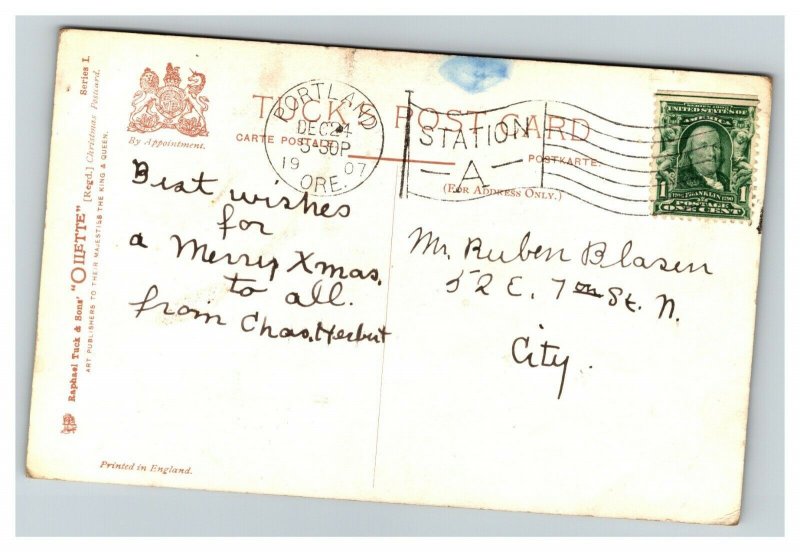 Raphael Tuck & Sons' "OILETTE" [Regd.] Christmas Postcard. Series I.
ART PUBLISHERS TO THEIR MAJESTIES THE KING & QUEEN.
By Appointment.
TUCK POST CARD
CARTE POSTALE
POSTKARTE.
(FOR ADDRESS ONLY.)
PORTLAND
DEC 24
19 07
ORE.
STATION
A
UNITED STATES OF
AMERICA
FRANKLIN
1 POSTAGE 1
ONE CENT
Best wishes
for
a Merry Xmas.
to all.
from Chas. Herbert
Mr. Ruben Blasen
52 E. 7th St. N.
City.
Printed in England.